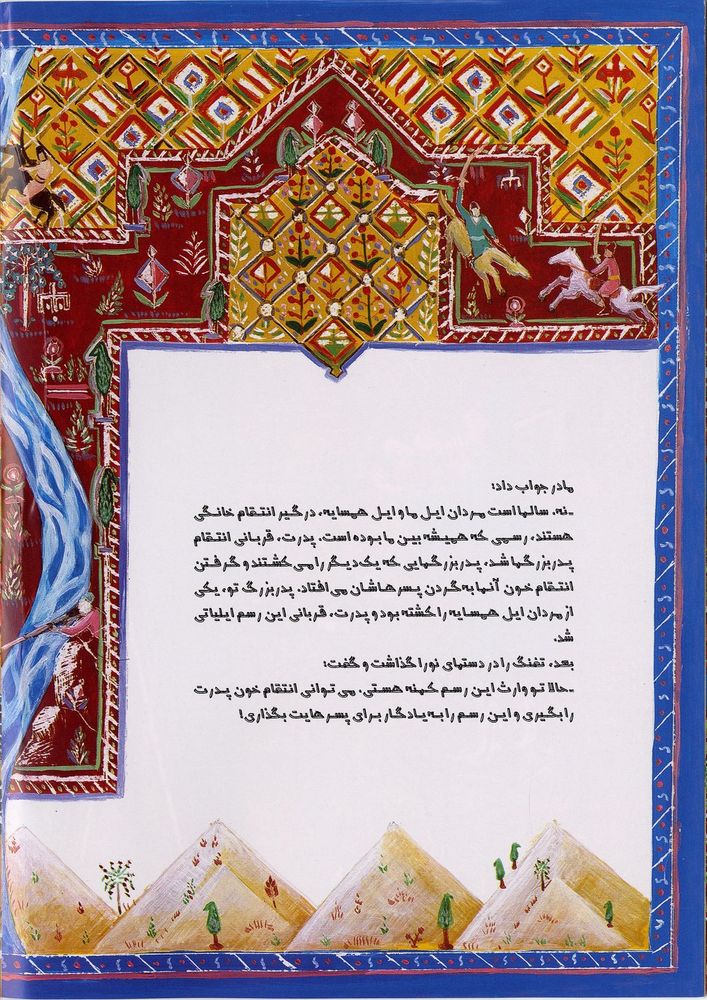 مادر جواب داد:
ـ نه. سالها است مردان ایل ما و ایل همسایه، درگیر انتقام خانگی
هستند. رسمی که همیشه بین ما بوده است. پدرت، قربانی انتقام
پدربزرگها شد. پدربزرگهایی که یک دیگر را می کشتند و گرفتن
انتقام خون آنها به گردن پسرهاشان می افتاد. پدربزرگ تو، یکی
از مردان ایل همسایه را کشته بود و پدرت، قربانی این رسم ایلیاتی
شد.
بعد، تفنگ را در دستهای نورا گذاشت و گفت:
ـ حالا تو وارث این رسم کهنه هستی. می توانی انتقام خون پدرت
را بگیری و این رسم را به یادگار برای پسرهایت بگذاری!